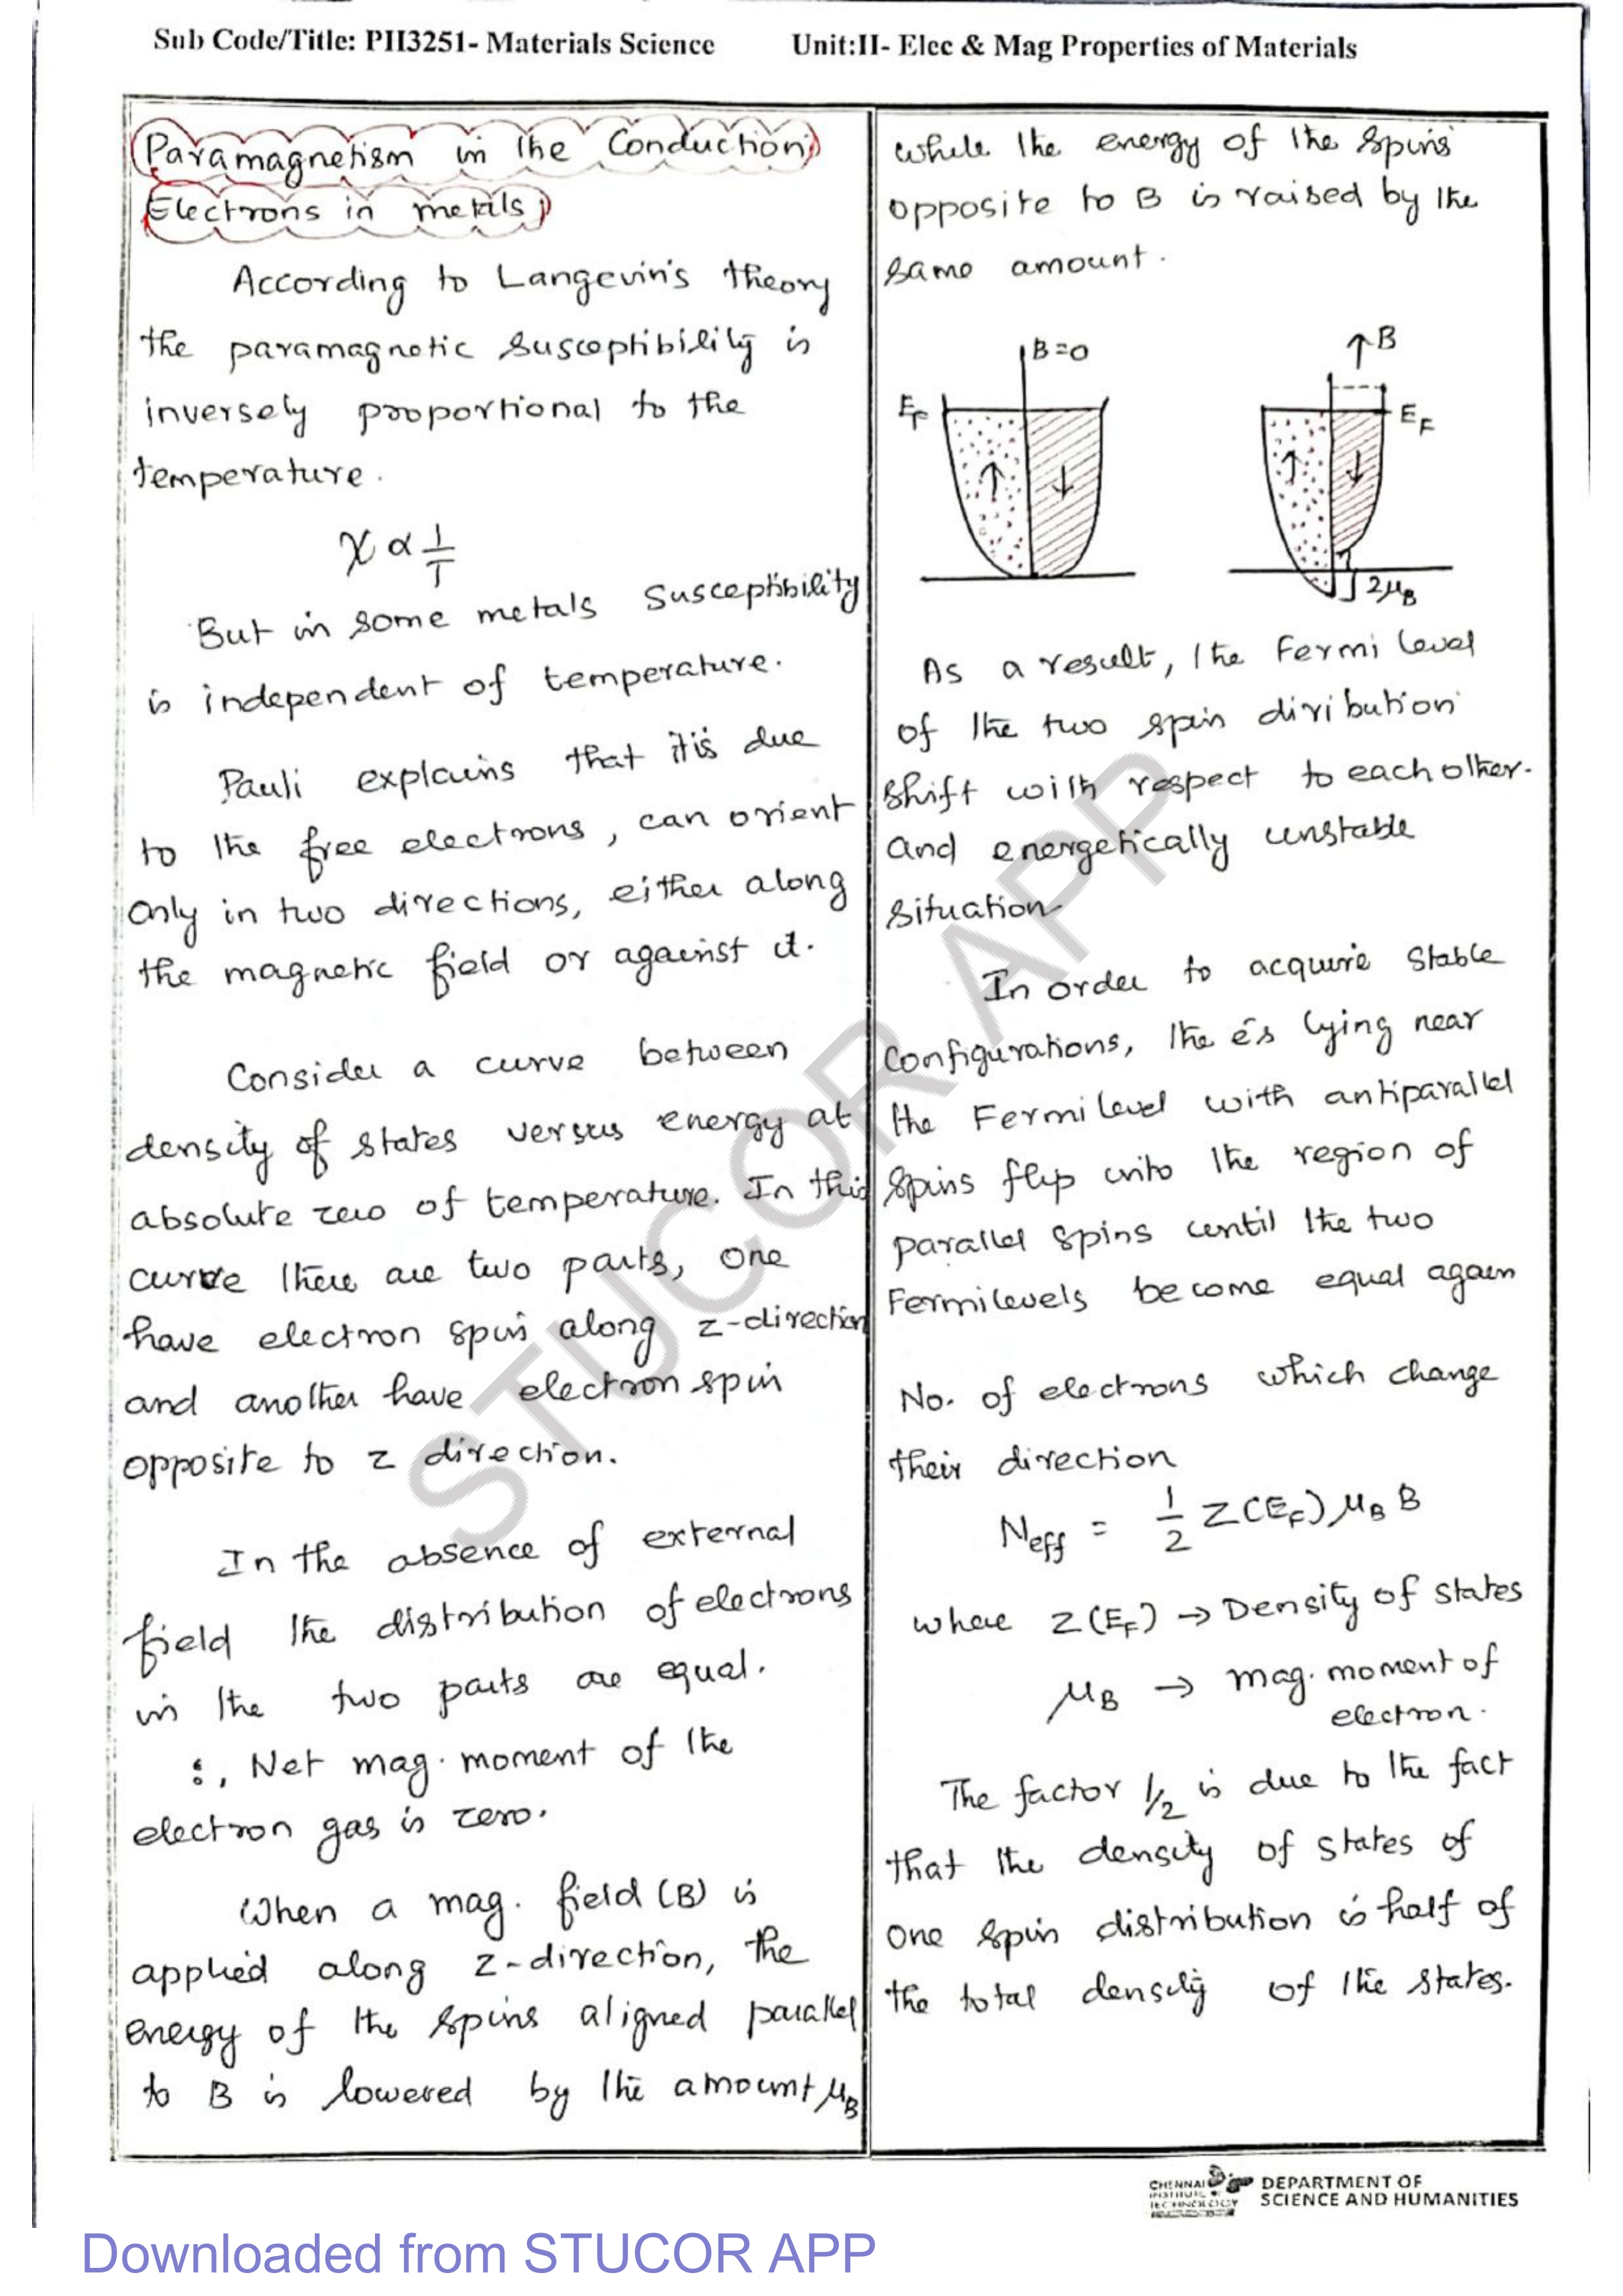 Sub Code/Title: PH3251- Materials Science Unit:II- Elec & Mag Properties of Materials
Paramagnetism in the Conduction
Electrons in metals
According to Langevin's theory
the paramagnetic susceptibility is
inversely proportional to the
temperature.
χ ∝ 1/T
But in some metals susceptibility
is independent of temperature.
Pauli explains that it is due
to the free electrons, can orient
only in two directions, either along
the magnetic field or against it.
Consider a curve between
density of states versus energy at
absolute zero of temperature. In this
curve there are two parts, one
have electron spin along z-direction
and another have electron spin
opposite to z direction.
In the absence of external
field the distribution of electrons
in the two parts are equal.
∴, Net mag. moment of the
electron gas is zero.
When a mag. field (B) is
applied along z-direction, the
energy of the spins aligned parallel
to B is lowered by the amount μB
while the energy of the spins
opposite to B is raised by the
same amount.
B=0
EF
↑ ↓
↑B
EF
↑ ↓
2μB
As a result, the Fermi level
of the two spin diribution
shift with respect to each other.
and energetically unstable
situation
In order to acquire stable
configurations, the e̅s lying near
the Fermi level with antiparallel
spins flip into the region of
parallel spins until the two
Fermi levels become equal again
No. of electrons which change
their direction
Neff = 1/2 Z(EF) μB B
where Z(EF) → Density of states
μB → mag. moment of
electron.
The factor 1/2 is due to the fact
that the density of states of
one spin distribution is half of
the total density of the states.
STUCOR APP
CHENNAI
INSTITUTE OF
TECHNOLOGY
DEPARTMENT OF
SCIENCE AND HUMANITIES
Downloaded from STUCOR APP